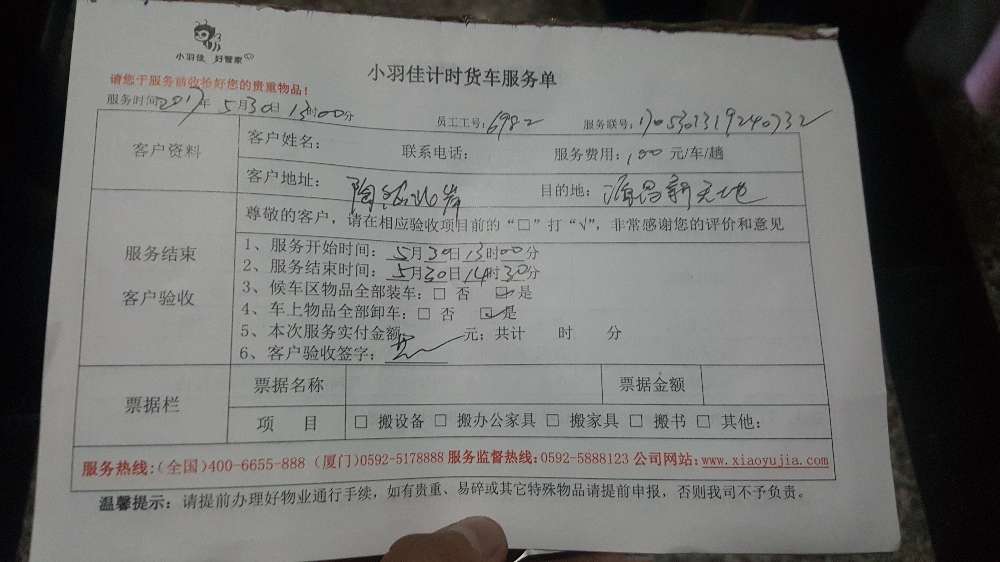 小羽佳 好管家
小羽佳计时货车服务单
请您于服务前收拾好您的贵重物品！
服务时间:2017年5月30日13时00分 员工工号:6982 服务联号:
客户资料
客户姓名： 联系电话： 服务费用:100 元/车/趟
客户地址： 目的地：海昌新天地
服务结束
客户验收
尊敬的客户，请在相应验收项目前的“□”打“√”，非常感谢您的评价和意见
1、服务开始时间：5月30日13时00分
2、服务结束时间：5月30日14时30分
3、候车区物品全部装车：□ 否 ☑ 是
4、车上物品全部卸车：□ 否 ☑ 是
5、本次服务实付金额 元；共计 时 分
6、客户验收签字：
票据栏
票据名称 票据金额
项 目 □ 搬设备 □ 搬办公家具 □ 搬家具 □ 搬书 □ 其他:
服务热线:(全国)400-6655-888 (厦门)0592-5178888 服务监督热线:0592-5888123 公司网站:www.xiaoyujia.com
温馨提示：请提前办理好物业通行手续，如有贵重、易碎或其它特殊物品请提前申报，否则我司不予负责。